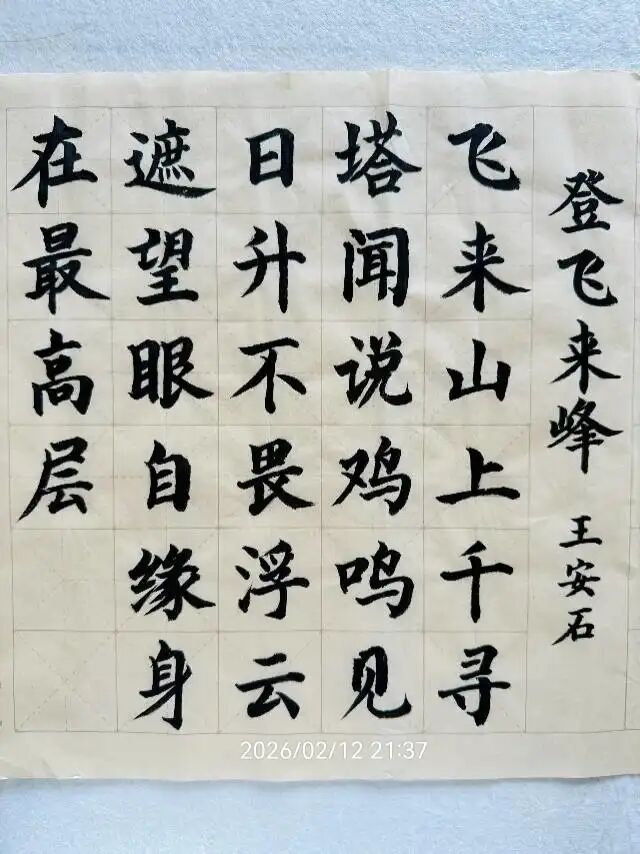 登飞来峰 王安石
飞来山上千寻
塔闻说鸡鸣见
日升不畏浮云
遮望眼自缘身
在最高层
2026/02/12 21:37